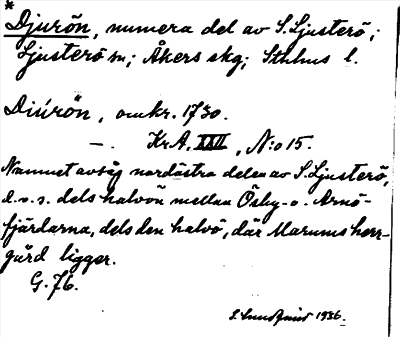 * Djurön, numera del av S. Ljusterö;
Ljusterö sn; Åkers skg; Sthlms l.
Diúrön, omkr. 1730.
—. Kr.A. XXII, N:o 15.
Namnet avsåg nordöstra delen av S. Ljusterö,
d.v.s. dels halvön mellan Östby- o. Arnö-
fjärdarna, dels den halvö, där Marums herr-
gård ligger.
G. 76.
1936.